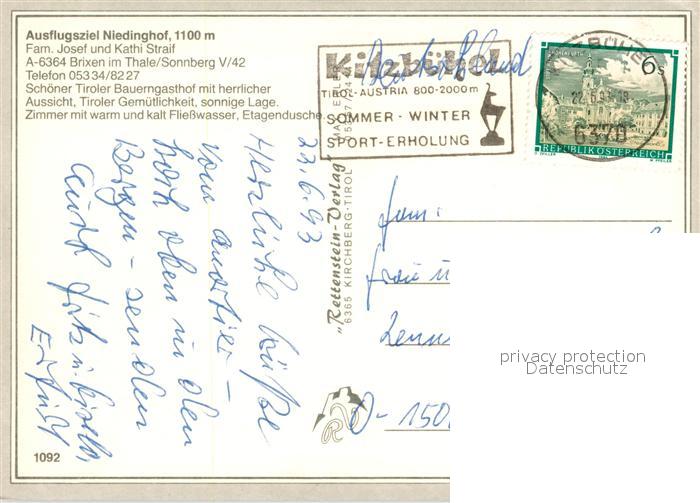 Ausflugsziel Niedinghof, 1100 m
Fam. Josef und Kathi Straif
A-6364 Brixen im Thale/Sonnberg V/42
Telefon 053 34/82 27
Schöner Tiroler Bauerngasthof mit herrlicher
Aussicht, Tiroler Gemütlichkeit, sonnige Lage.
Zimmer mit warm und kalt Fließwasser, Etagendusche.
Kitzbühel
TIROL-AUSTRIA 800-2000m
SOMMER - WINTER
SPORT-ERHOLUNG
Deutschland
6s
6370
REPUBLIK ÖSTERREICH
23.6.93
Herzliche Grüße
vom
hoch oben in den
Bergen - senden
Fritz u.
„Rettenstein-Verlag"
6365 KIRCHBERG · TIROL
Fam.
Frau u
D- 150
1092
privacy protection
Datenschutz